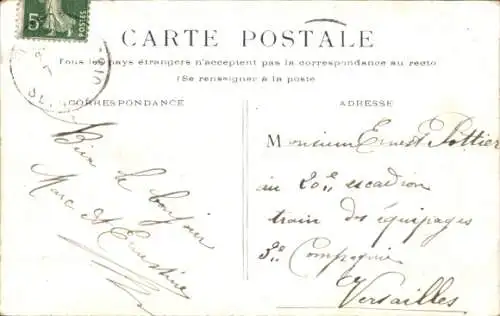 5c
POSTES
CARTE POSTALE
Tous les pays étrangers n'acceptent pas la correspondance au recto
(Se renseigner à la poste
CORRESPONDANCE
ADRESSE
Bien le bonjour
Marc et Ernestine
Monsieur Ernest Pottier
au 20e escadron
train des équipages
3e Compagnie
Versailles